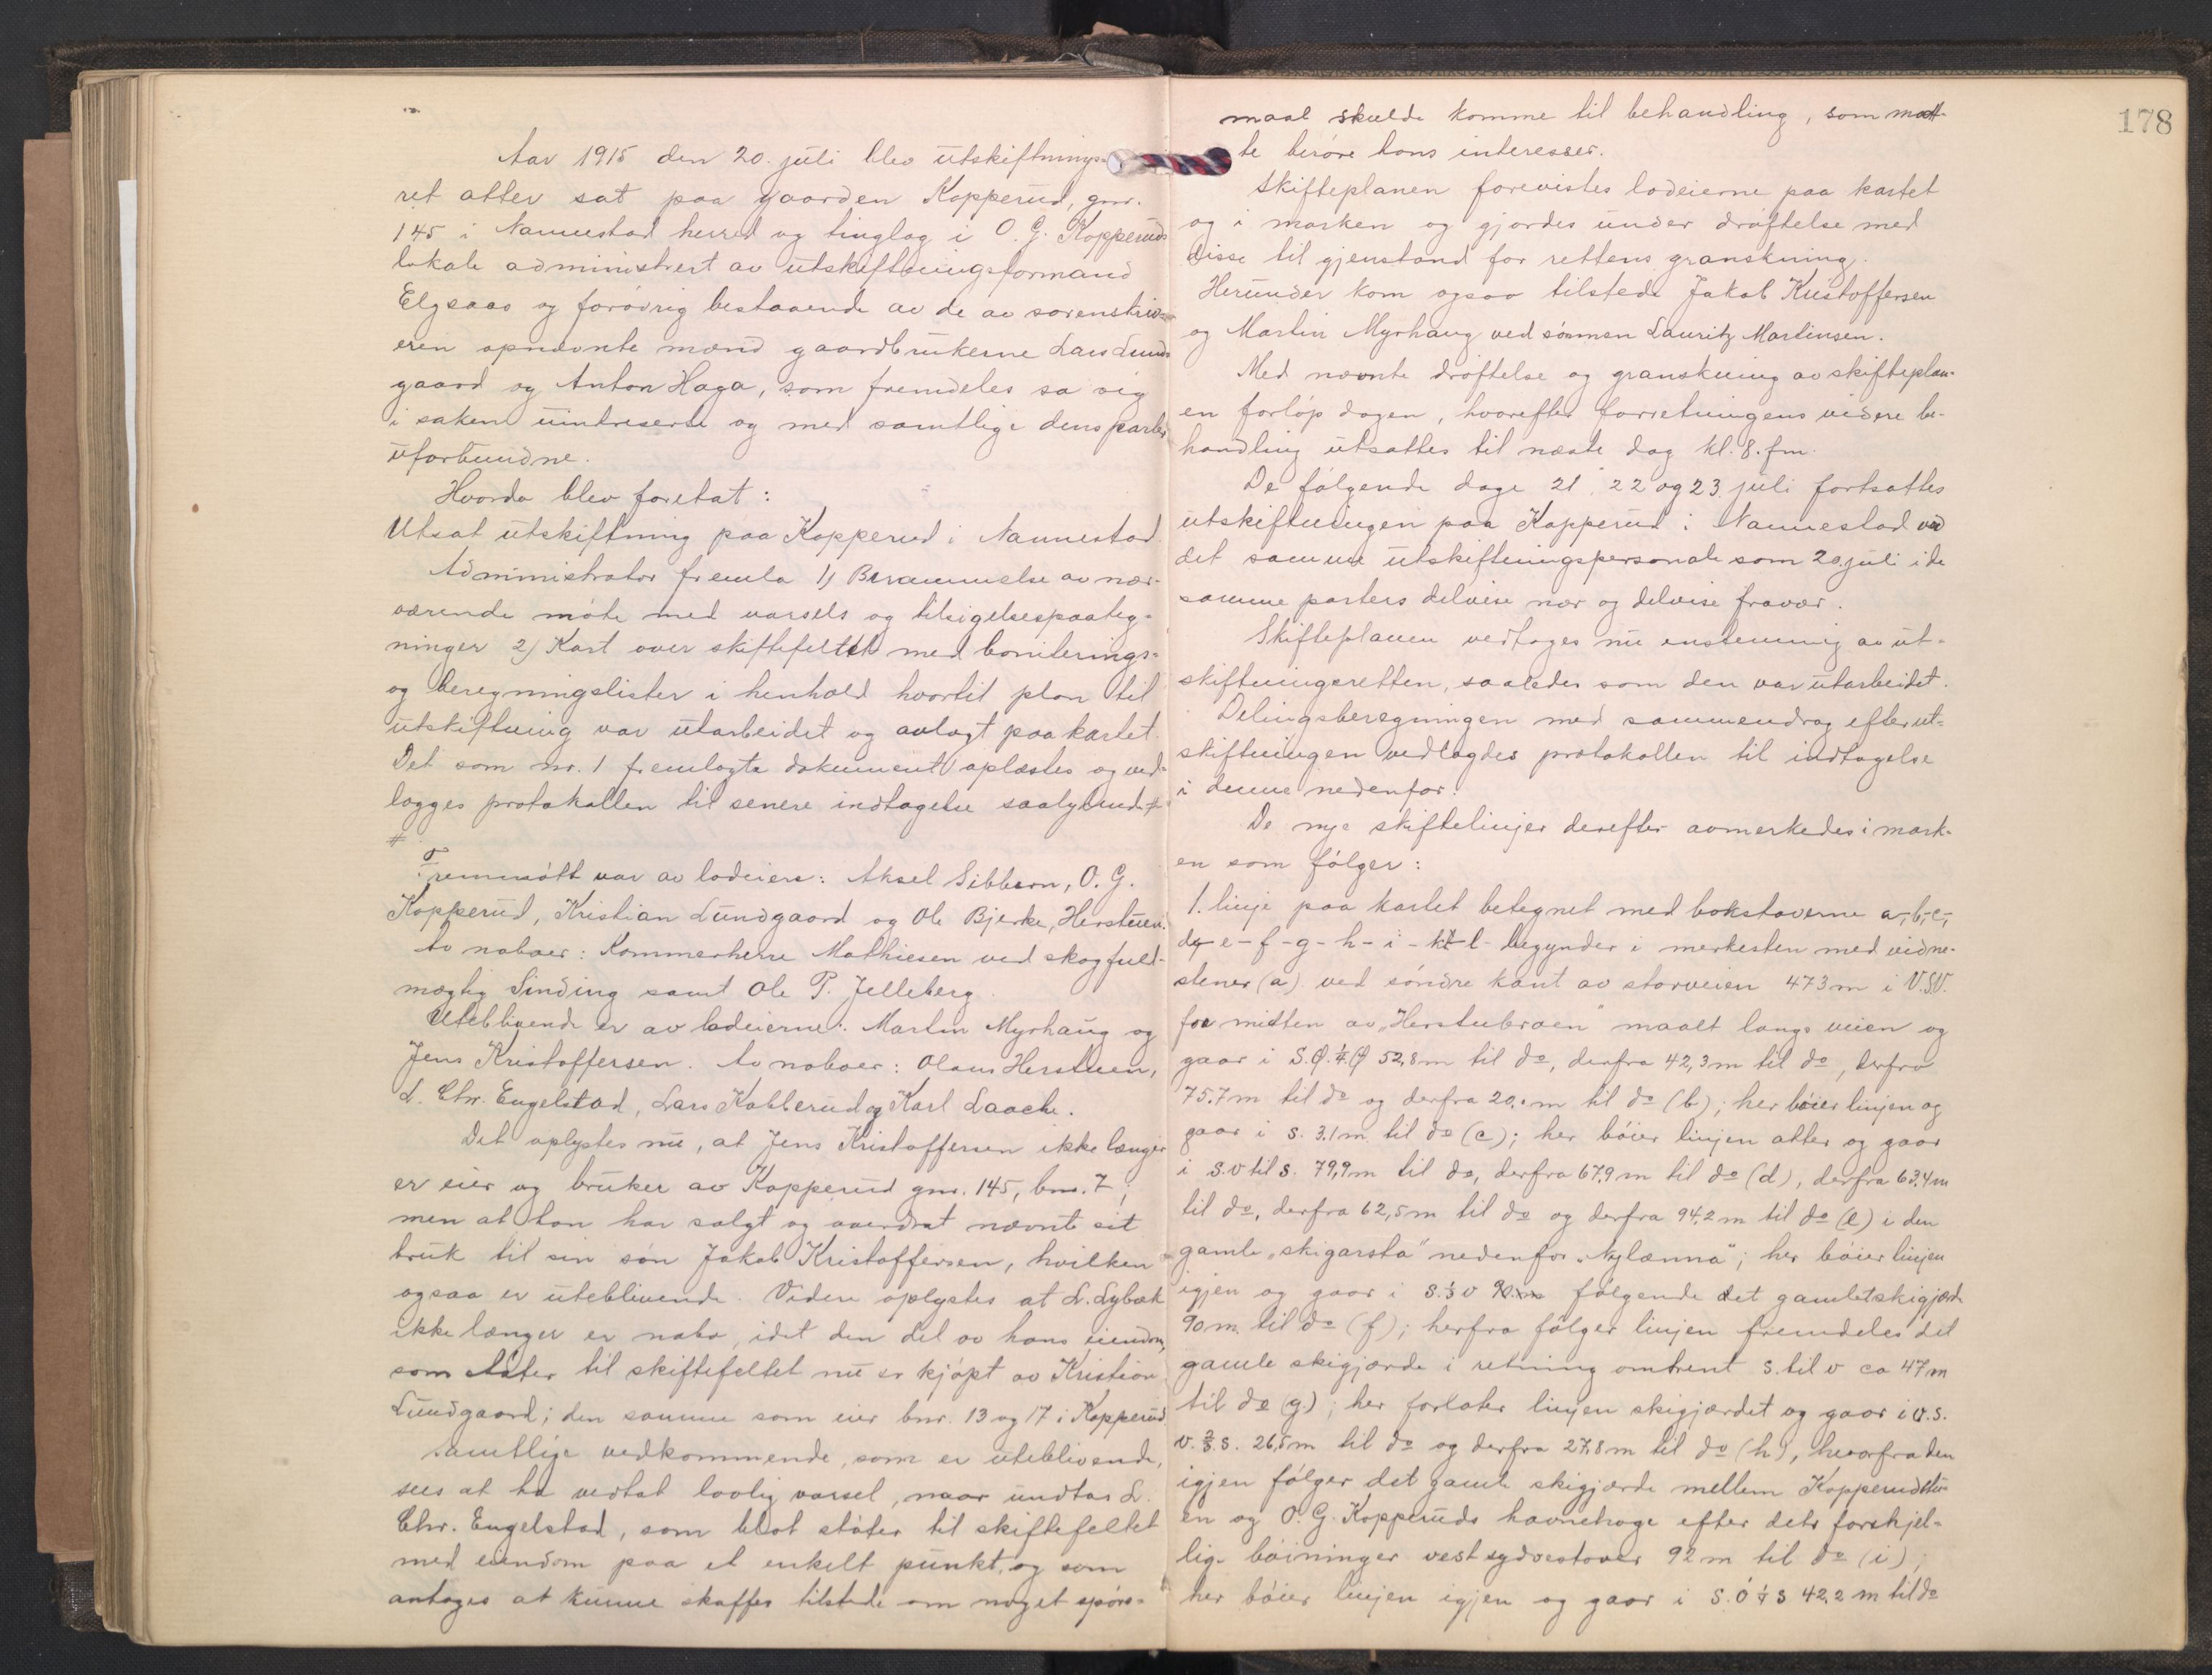 Aar 1915 den 20. juli blev utskiftnings-
ret atter sat paa gaarden Kopperud, gnr.
145 i Nannestad herred og tinglag i O. G. Kopperuds
lokale administrert av utskiftningsformand
Elgsaas og forøvrig bestaaende av de av sorenskriv-
eren opnævnte mænd gaardbrukerne Lars Lund-
gaard og Anton Haga, som fremdeles sa sig
i saken uintreserte og med samtlige dens parter
uforbundne.
Hvorda blev foretat:
Utsat utskiftning paa Kopperud i Nannestad
Administrator fremla 1) Berammelse av nær-
værende møte med varsels og tilsigelsespaateg-
ninger 2) Kart over skiftefeltet med boniterings-
og beregningslister i henhold hvortil plan til
utskiftning var utarbeidet og avlagt paa kartet.
Det som nr. 1 fremlagte dokument oplæstes og ved-
lægges protokollen til senere indtagelse saalydende #
#
Fremmøtt var av lodeiere: Aksel Sibbern, O. G.
Kopperud, Kristian Lundgaard og Ole Bjerke, Herstuen.
Av naboer: Kammerherre Mathiesen ved skogfuld-
mægtig Sinding samt Ole P. Jelleberg.
Uteblivende er av lodeierne: Martin Myrhaug og
Jens Kristoffersen. Av naboer: Olaus Herstuen,
L. Chr. Engelstad, Lars Kobberud og Karl Laache.
Det oplystes nu, at Jens Kristoffersen ikke længer
er eier og bruker av Kopperud gnr. 145, bnr. 7,
men at han har solgt og overdrat nævnte sit
bruk til sin søn Jakob Kristoffersen, hvilken
ogsaa er uteblivende. Videre oplystes at L. Lybæk
ikke længer er nabo, idet den del av hans eiendom,
som støter til skiftefeltet nu er kjøpt av Kristian
Lundgaard; den samme som eier bnr. 13 og 17 i Kopperud.
Samtlige vedkommende, som er uteblivende,
sees at ha vedtat lovlig varsel, naar undtas L.
Chr. Engelstad, som blot støter til skiftefeltet
med eiendom paa et enkelt punkt, og som
antages at kunne skaffes tilstede om noget spørs-
178
maal skulde komme til behandling, som maat-
te berøre hans interesser.
Skifteplanen forevistes lodeierne paa kartet
og i marken og gjordes under drøftelse med
disse til gjenstand for rettens granskning.
Herunder kom ogsaa tilstede Jakob Kristoffersen
og Martin Myrhaug ved sønnen Lauritz Martinsen.
Med nævnte drøftelse og granskning av skifteplan-
en forløp dagen, hvorefter forretningens videre be-
handling utsattes til næste dag kl. 8. fm.
De følgende dage 21, 22 og 23 juli fortsattes
utskiftningen paa Kopperud i Nannestad ved
det samme utskiftningspersonale som 20. juli i de
samme parters delvise nær og delvise fravær.
Skifteplanen vedtoges nu enstemmig av ut-
skiftningsretten, saaledes som den var utarbeidet.
Delingsberegningen med sammendrag efter ut-
skiftningen vedlagdes protokollen til indtagelse
i denne nedenfor.
De nye skiftelinjer derefter avmerkedes i mark-
en som følger:
1. linje paa kartet betegnet med bokstaverne a-, b-, c-,
d- e - f - g - h - i - k - l - begynder i merkesten med vidne-
stener (a) ved søndre kant av storveien 473 m i V.S.V.
for midten av "Herstubroen" maalt langs veien og
gaar i S.Ø.¼.Ø 52,8 m til do, derfra 42,3 m til do, derfra
75,7 m til do og derfra 20,0 m til do (b); her bøier linjen og
gaar i s. 3,1 m til do (c); her bøier linjen atter og gaar
i s.v til s. 79,9 m til do, derfra 67,9 m til do (d), derfra 63,4 m
til do, derfra 62,5 m til do og derfra 94,2 m til do (e) i den
gamle "skigarsta" nedenfor "Nylænna"; her bøier linjen
igjen og gaar i S.½ v følgende det gamle skigjærde
90 m til do (f); herfra følger linjen fremdeles det
gamle skigjærde i retning omtrent s. til v ca 47 m
til do (g); her forlater linjen skigjærdet og gaar i v.s.
v. s. 26,5 m til do og derfra 27,8 m til do (h), hvorfra den
igjen følger det gamle skigjærde mellem Kopperudstu-
en og O. G. Kopperuds havnehage efter dets forskjel-
lige bøininger vestsydvestover 92 m til do (i),
her bøier linjen igjen og gaar i S.Ø ¼ S 42,2 m til do